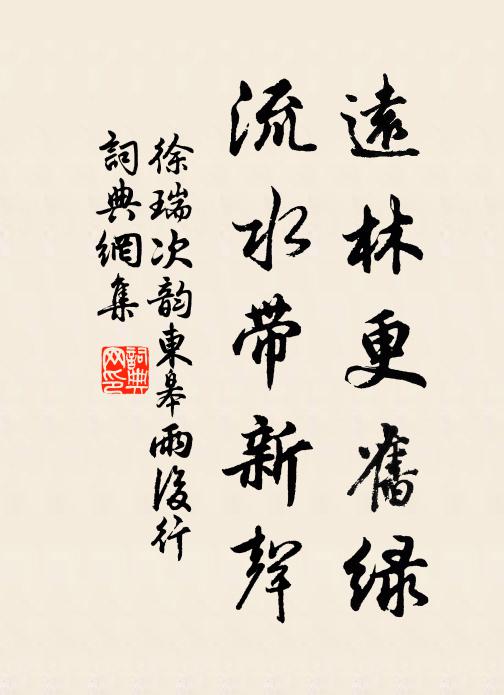 遠林更舊緑
流水帶新聲
徐瑞次韵東皋雨後行
詞典網集
詞典网印